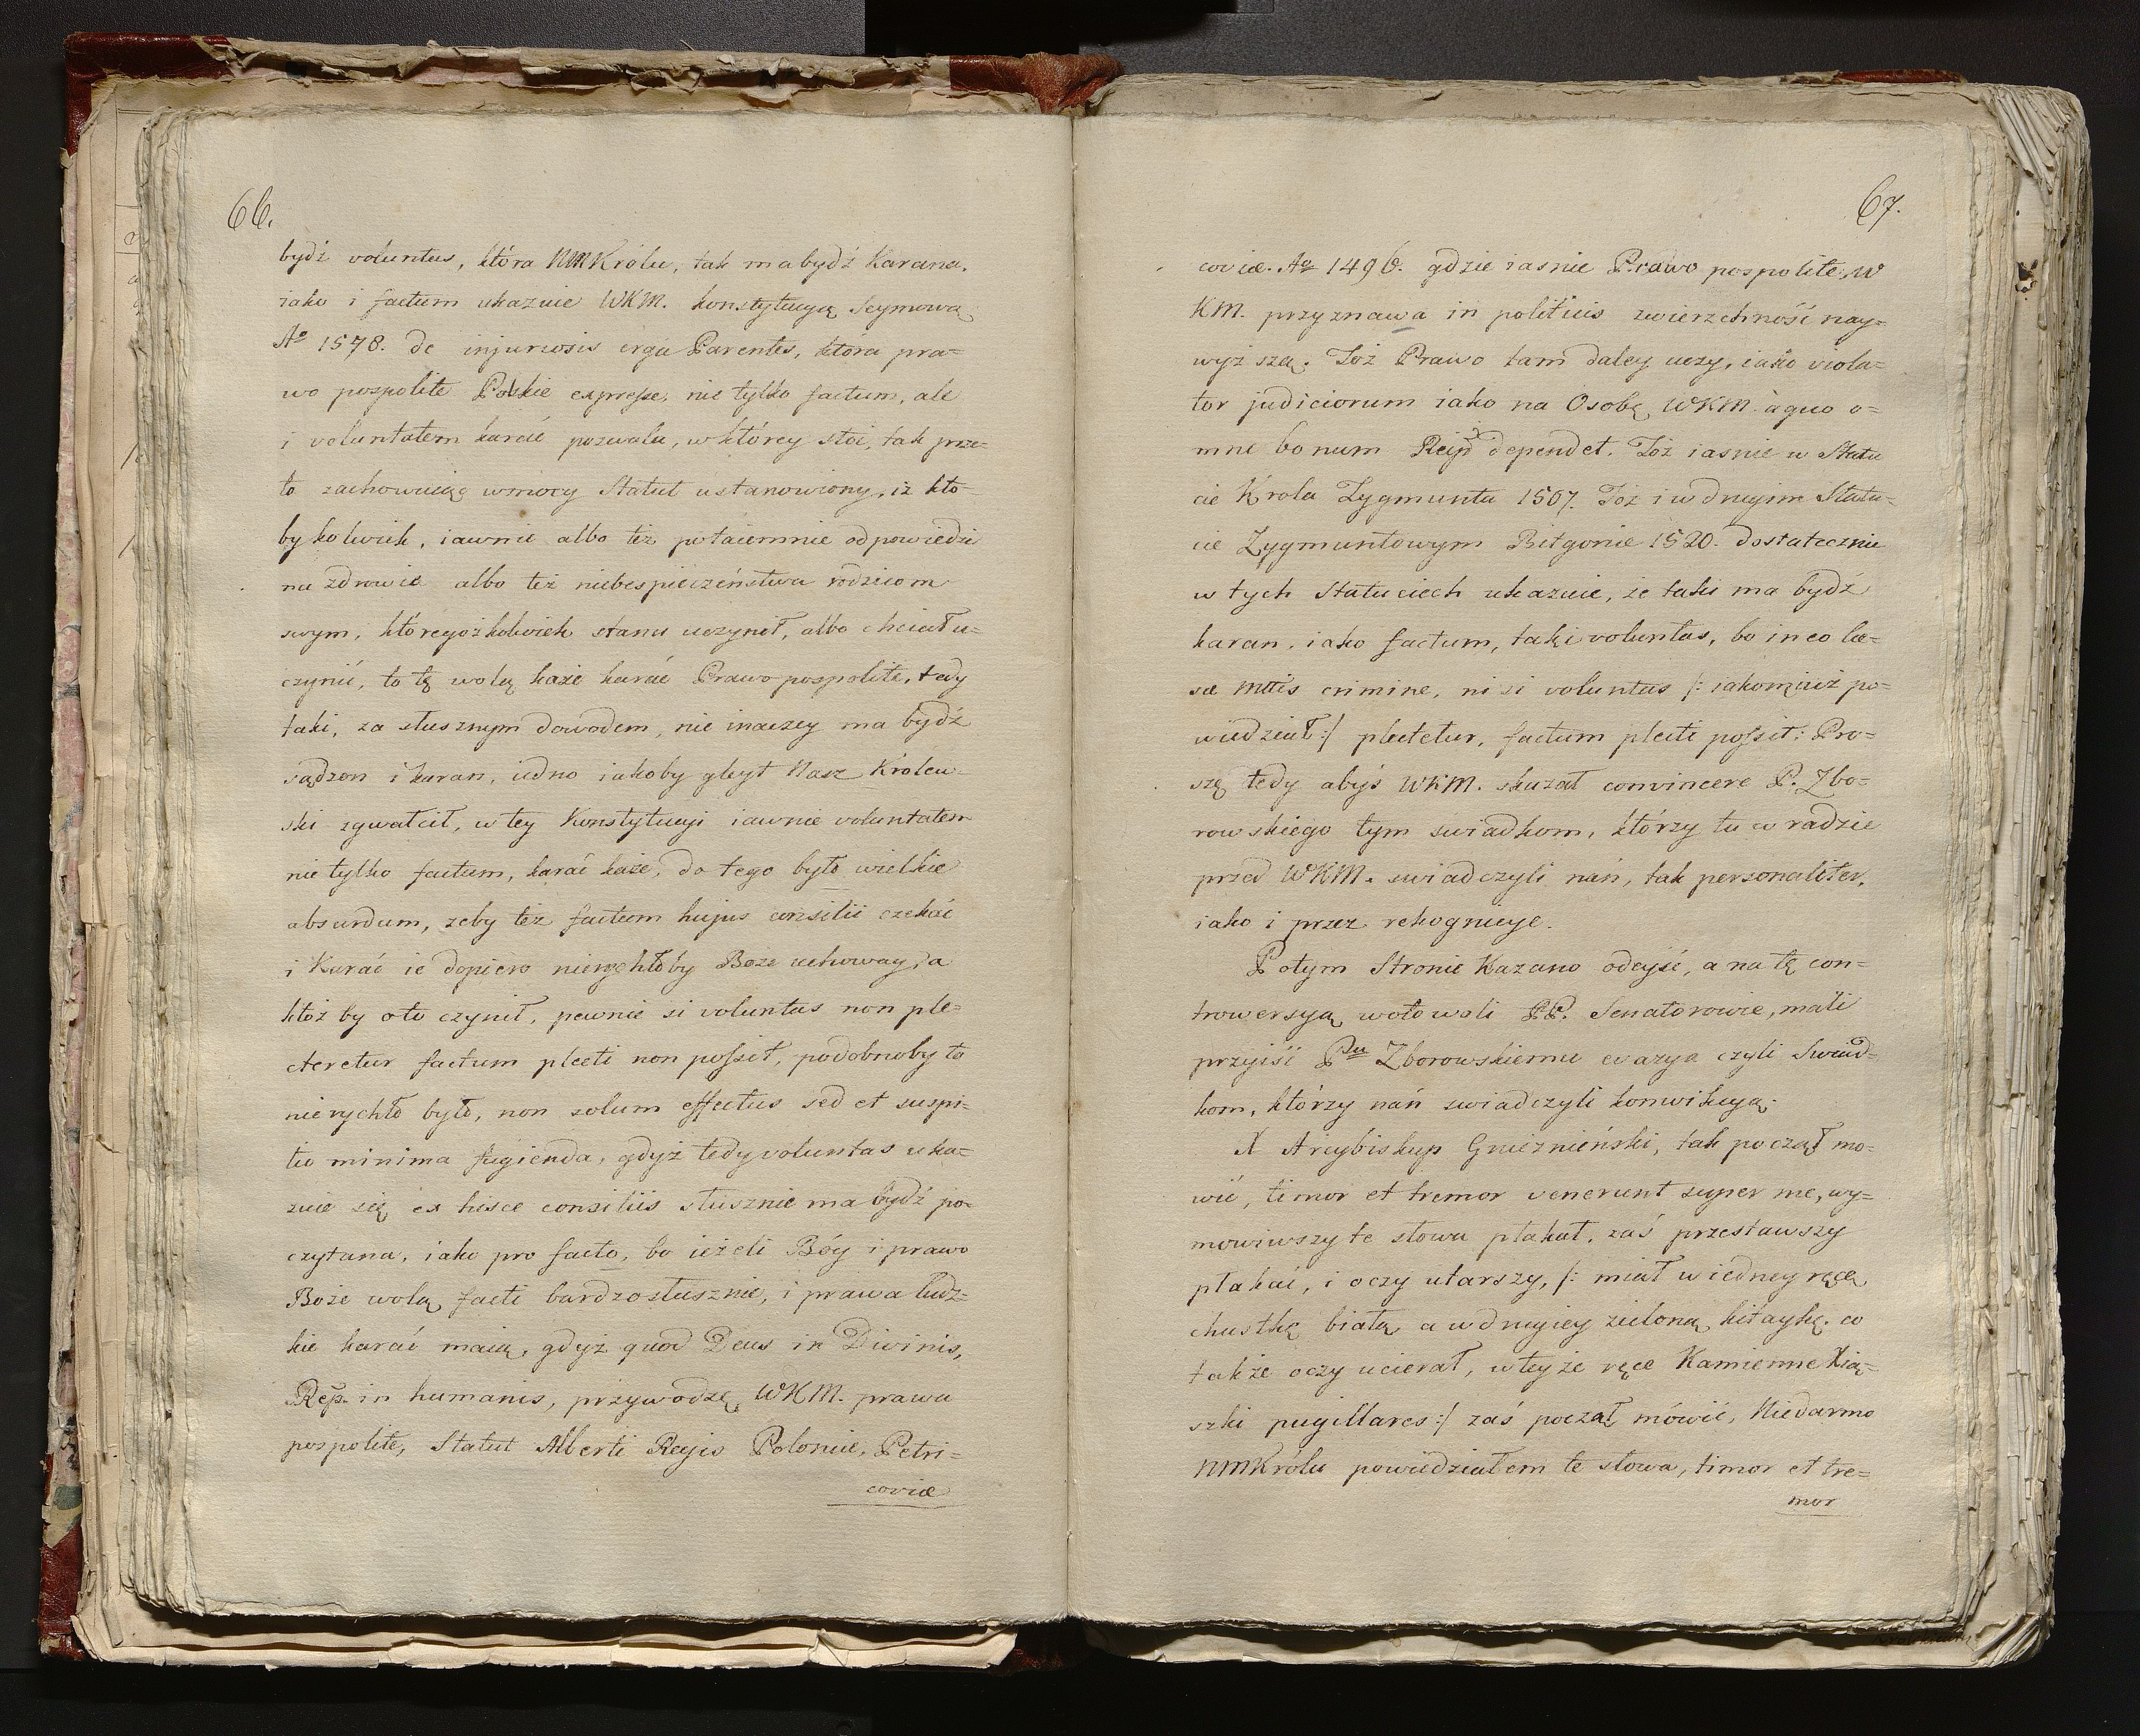 66.
bydź voluntas, która NMKrólu, tak ma bydź karana,
iako i factum ukazuie WKM. konstytucyą Seymową
Aº 1578. de injuriosis erga Parentes, ktora pra=
wo pospolite Polskie expresse, nie tylko factum, ale
i voluntatem karać pozwala, w którey stoi, tak prze=
to zachowuiąc w mocy Statut ustanowiony, iż kto
by kolwiek, iawnie albo też potaiemnie odpowiedzi
na zdrowie albo też niebespieczeństwa rodzicom
swym, któregożkolwiek stanu uczynił, albo chciał u=
czynić, to tę wolą każe karać Prawo pospolite, tedy
taki, za słusznym dowodem, nie inaczey ma bydź
sądzon i karan, iedno iakoby gleyt Nasz Królew=
ski zgwałcił, w tey Konstytucyi iawnie voluntatem
nie tylko factum, karać każe, do tego było wielkie
absurdum, żeby też factum hujus consilii czekać
i karać ie dopiero nierychłoby Boże uchoway, a
któż by o to czynił, pewnie si voluntas non ple=
cteretur factum plecti non possit, podobnoby to
nierychło było, non solum effectus sed et suspi=
tio minima fugienda, gdyż tedy voluntas uka=
zuie się ex hisce consiliis słusznie ma bydź po=
czytana, iako pro facto, bo ieżeli Bóg i prawo
Boże wolą facti bardzo słusznie, i prawa ludz=
kie karać maią, gdyż quod Deus in Divinis,
Rep. in humanis, przywodzę WKM. prawa
pospolite, Statut Alberti Regis Poloniæ, Petri=
coviæ
67.
coviæ. Aº 1496. gdzie iasnie Prawo pospolite, W
KM. przyznawa in politicis zwierzchność nay=
wyższą. Toż Prawo tam daley uczy, iako viola=
tor judiciorum iako na Osobę WKM. à quo o=
mne bonum Reip. dependet. Toż iasnie w Statu
cie Krola Zygmunta 1507. Toż i w drugim Statu=
cie Zygmuntowym Bitgoniæ 1520. dostatecznie
w tych Statuciech ukazuie, że taki ma bydź
karan, iako factum, taki voluntas, bo in eo læ=
sæ Mttis crimine, nisi voluntas /: iakom iuż po=
wiedział :/ plectetur, factum plecti possit: Pro=
szę tedy abyś WKM. skazał convincere P. Zbo=
rowskiego tym swiadkom, którzy tu w radzie
przed WKM. swiadczyli nań, tak personaliter,
iako i przez rekognicye.
Potym Stronie Kazano odeyść, a na tę con=
trowersyą wotowali PP. Senatorowie, mali
przyiść Pu Zborowskiemu ewazya czyli Swiad=
kom, którzy nań swiadczyli konwikcya.
X Arcybiskup Gnieznieński, tak począł mo=
wić, timor et tremor venerunt super me, wy=
mowiwszy te słowa płakał, zaś przestawszy
płakać, i oczy utarszy, /: miał w iedney ręce
chustkę białą, a w drugiey zieloną kitaykę, co
także oczy ucierał, w teyże ręce Kamienne Xią=
szki pugillares :/ zaś począł mówić, Niedarmo
NMKrólu powiedziałem te słowa, timor et tre=
mor